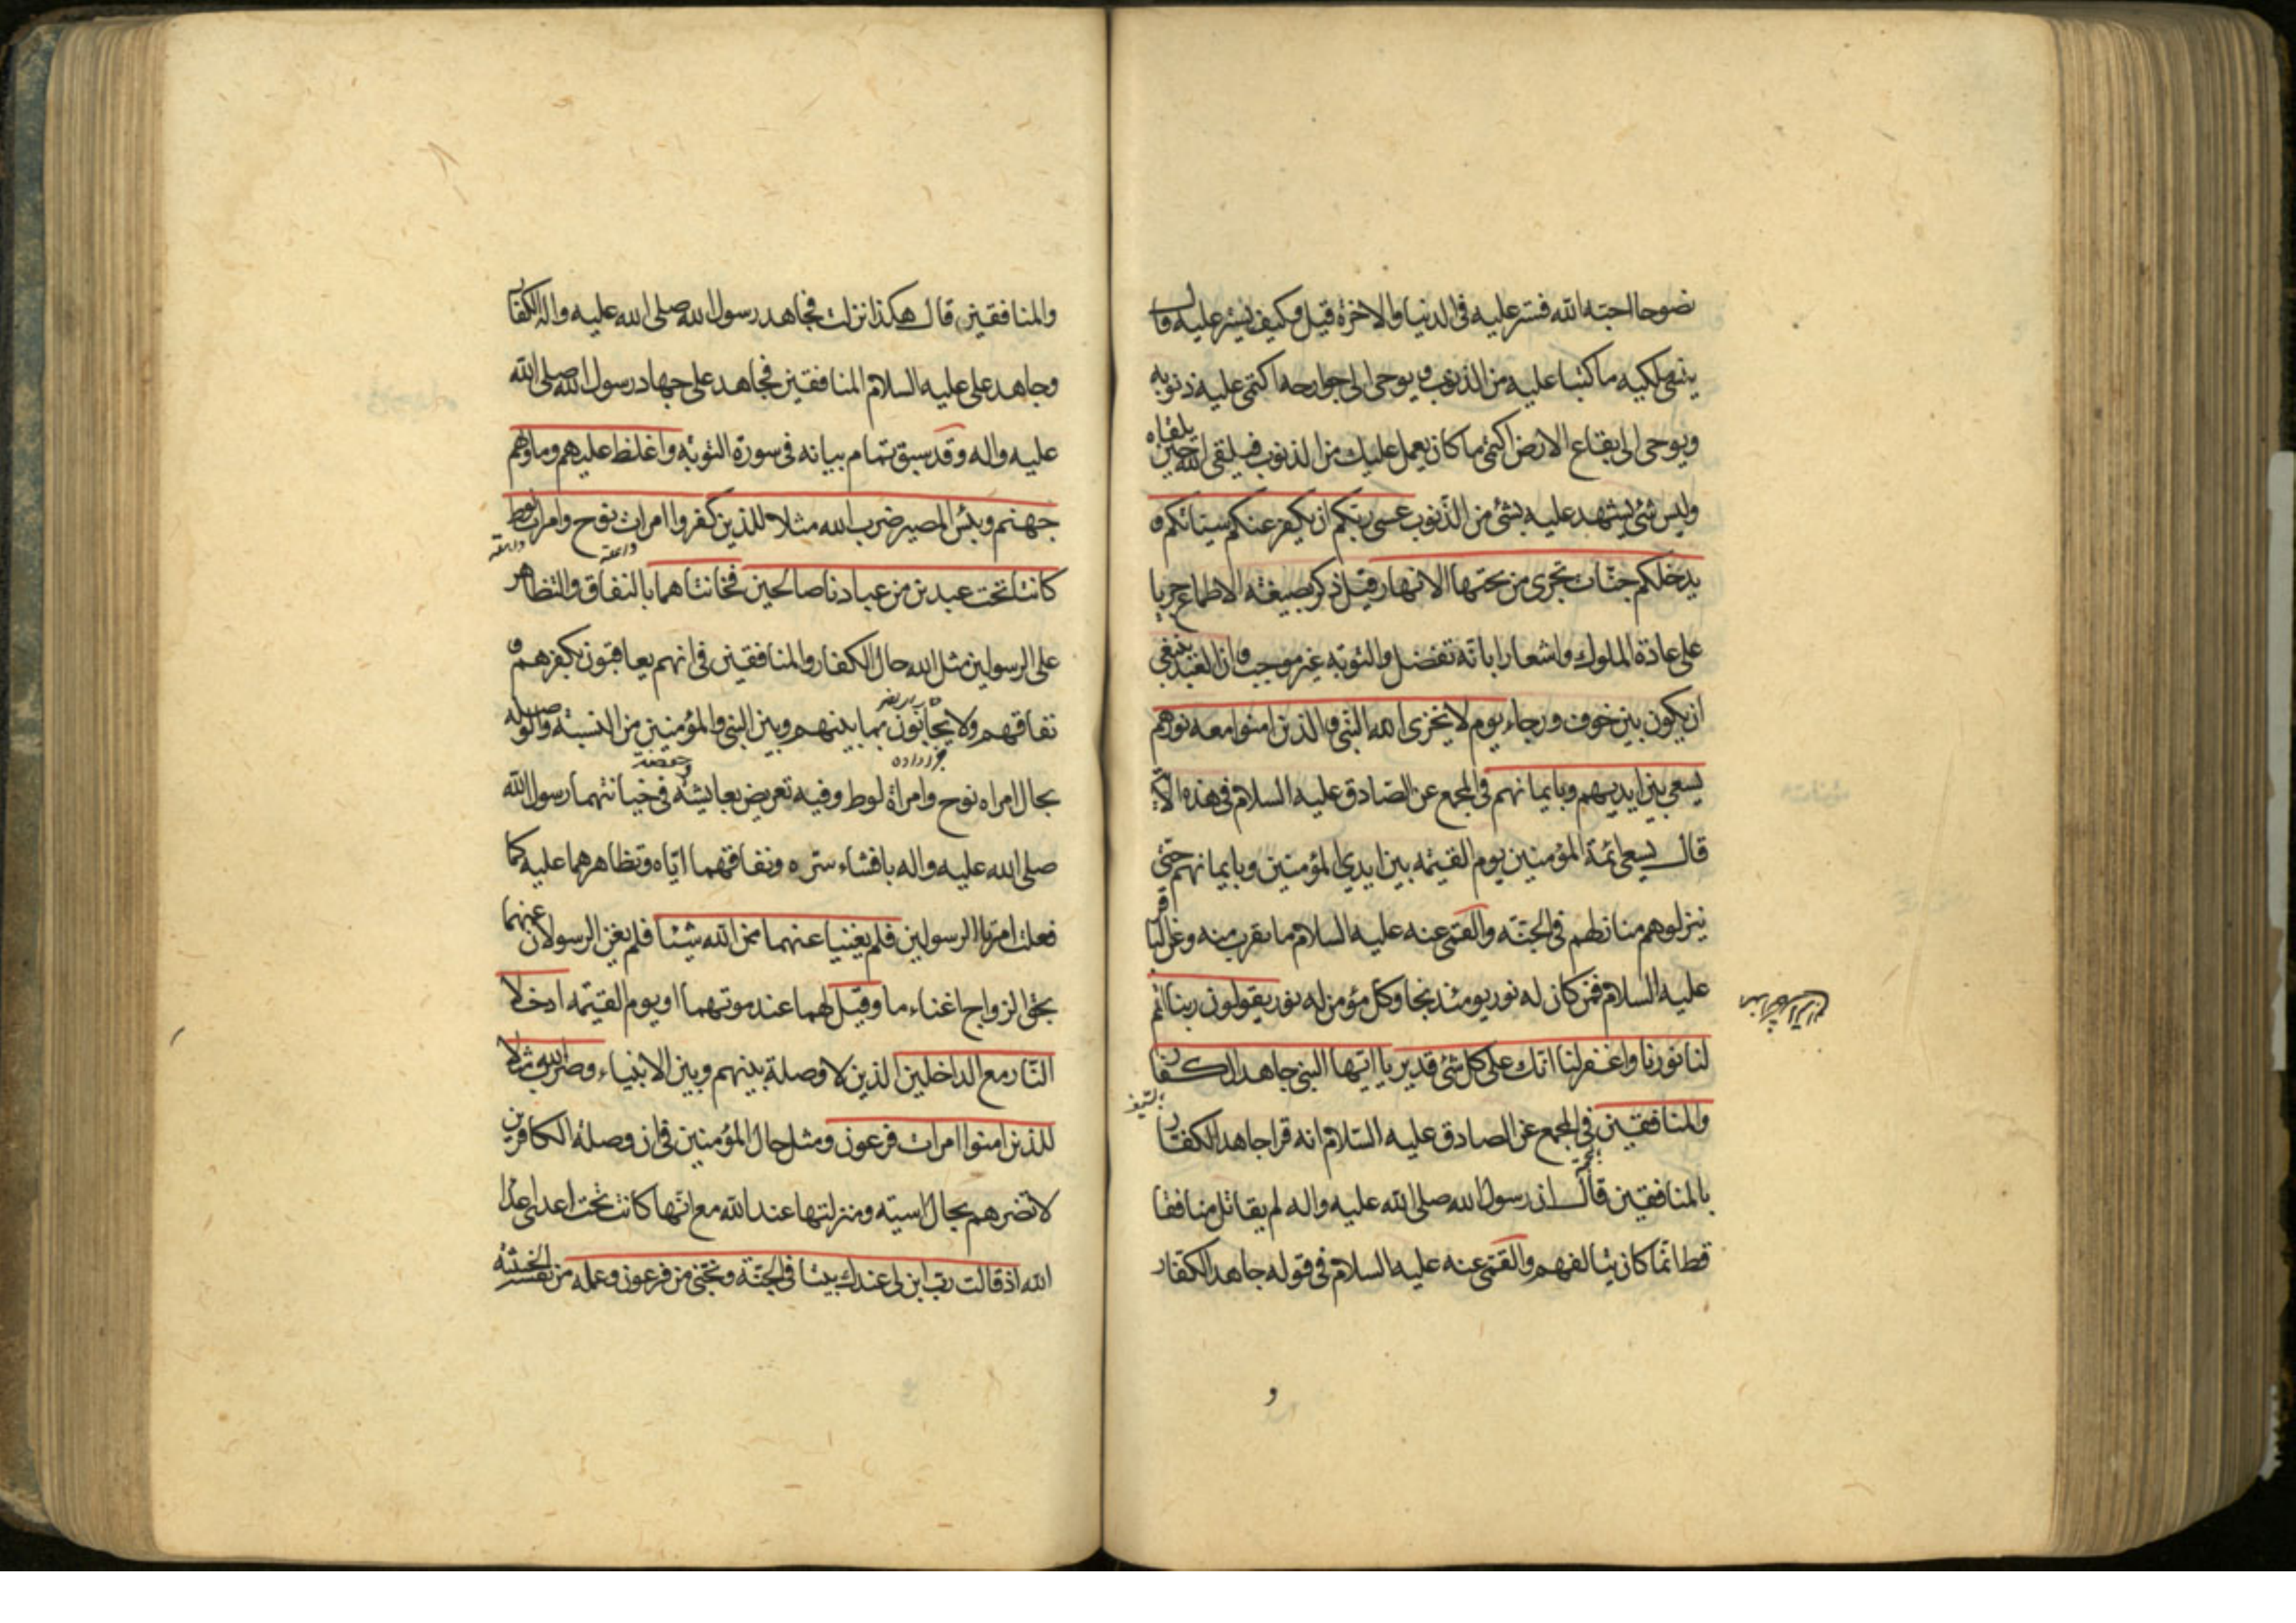 نصوحا احبه الله فستر عليه فى الدنيا والاخرة قيل وكيف يستر عليه قال
ينسى ملكيه ما كتبا عليه من الذنوب ويوحى الى جوارحه اكتمى عليه ذنوبه
ويوحى الى بقاع الارض اكتمى ما كان يعمل عليك من الذنوب فيلقى الله حين يلقاه
وليس شئ يشهد عليه بشئ من الذنوب عسى ربكم ان يكفر عنكم سيئاتكم و
يدخلكم جنات تجرى من تحتها الانهار قيل ذكر بصيغة الاطماع جريا
على عادة الملوك واشعارا بانه تفضل والتوبة غير موجب وان العبد ينبغى
ان يكون بين خوف ورجاء يوم لا يخزى الله النبى والذين امنوا معه نورهم
يسعى بين ايديهم وبايمانهم فى المجمع عن الصادق عليه السلام فى هذه الاية
قال يسعى ائمة المؤمنين يوم القيمة بين ايدي المؤمنين وبايمانهم حتى
ينزلوهم منازلهم فى الجنة والقمى عنه عليه السلام ما يقرب منه وعن الباقر
عليه السلام فمن كان له نور يومئذ نجا وكل مؤمن له نور يقولون ربنا اتمم
لنا نورنا واغفر لنا انك على كل شئ قدير يا ايها النبى جاهد الكفار
والمنافقين فى المجمع عن الصادق عليه السلام انه قرا جاهد الكفار
بالمنافقين قال ان رسول الله صلى الله عليه واله لم يقاتل منافقا
قط انما كان يتالفهم والقمى عنه عليه السلام فى قوله جاهد الكفار
و
والمنافقين قال هكذا نزلت فجاهد رسول الله صلى الله عليه واله الكفار
وجاهد على عليه السلام المنافقين فجاهد على جهاد رسول الله صلى الله
عليه واله وقد سبق تمام بيانه فى سورة التوبة واغلظ عليهم وماويهم
جهنم وبئس المصير ضرب الله مثلا للذين كفروا امرات نوح وامرات لوط
كانتا تحت عبدين من عبادنا صالحين فخانتاهما بالنفاق والتظاهر
على الرسولين مثل الله حال الكفار والمنافقين فى انهم يعاقبون بكفرهم و
نفاقهم ولا يحابون بما بينهم وبين النبى والمؤمنين من النسبة والوصلة
بحال امراه نوح وامراة لوط وفيه تعريض بعايشة وحفصة فى خيانتهما رسول الله
صلى الله عليه واله بافشاء سره ونفاقهما اياه وتظاهرهما عليه كما
فعلت امرتا الرسولين فلم يغنيا عنهما من الله شيئا فلم يغن الرسولان عنهما
بحق الزواج اغناء ما وقيل لهما عند موتهما او يوم القيمة ادخلا
النار مع الداخلين الذين لا وصلة بينهم وبين الانبياء وضرب الله مثلا
للذين امنوا امرات فرعون ومثل حال المؤمنين فى ان وصلة الكافرين
لا تضرهم بحال اسية ومنزلتها عند الله مع انها كانت تحت اعدى اعداء
الله اذ قالت رب ابن لى عندك بيتا فى الجنة ونجنى من فرعون وعمله من نفسه الخبيثة